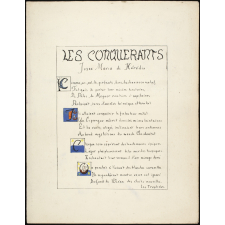 LES CONQUERANTS
José-Maria de Hérédia
Comme un vol de gerfauts hors du charnier natal,
Fatigués de porter leurs misères hautaines,
De Palos de Moguer, routiers et capitaines
Partaient, ivres d'un rêve héroïque et brutal.
Ils allaient conquérir le fabuleux métal
Que Cipango mûrit dans ses mines lointaines,
Et les vents alizés inclinaient leurs antennes
Aux bords mystérieux du monde Occidental.
Chaque soir, espérant des lendemains épiques,
L'azur phosphorescent de la mer des Tropiques
Enchantait leur sommeil d'un mirage doré;
Ou penchés à l'avant des blanches caravelles,
Ils regardaient monter en un ciel ignoré
Du fond de l'Océan des étoiles nouvelles.
Les Trophées